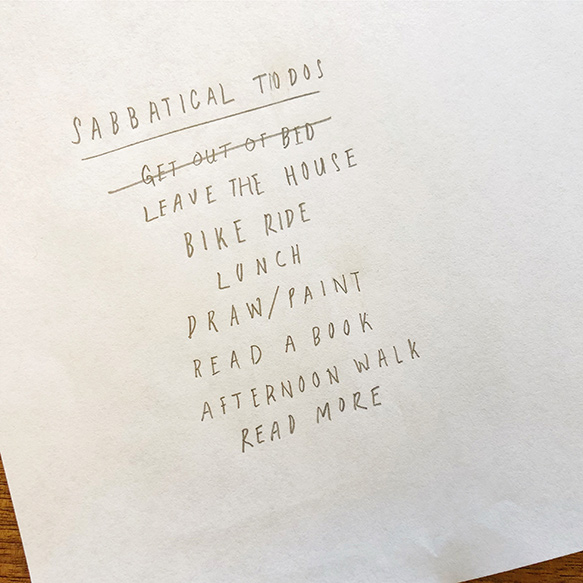 SABBATICAL TODOS
GET OUT OF BED
LEAVE THE HOUSE
BIKE RIDE
LUNCH
DRAW/PAINT
READ A BOOK
AFTERNOON WALK
READ MORE